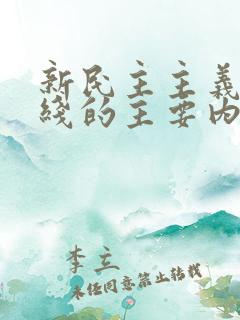 新民主主義
綫的主要内
李立
未經同意禁止轉載